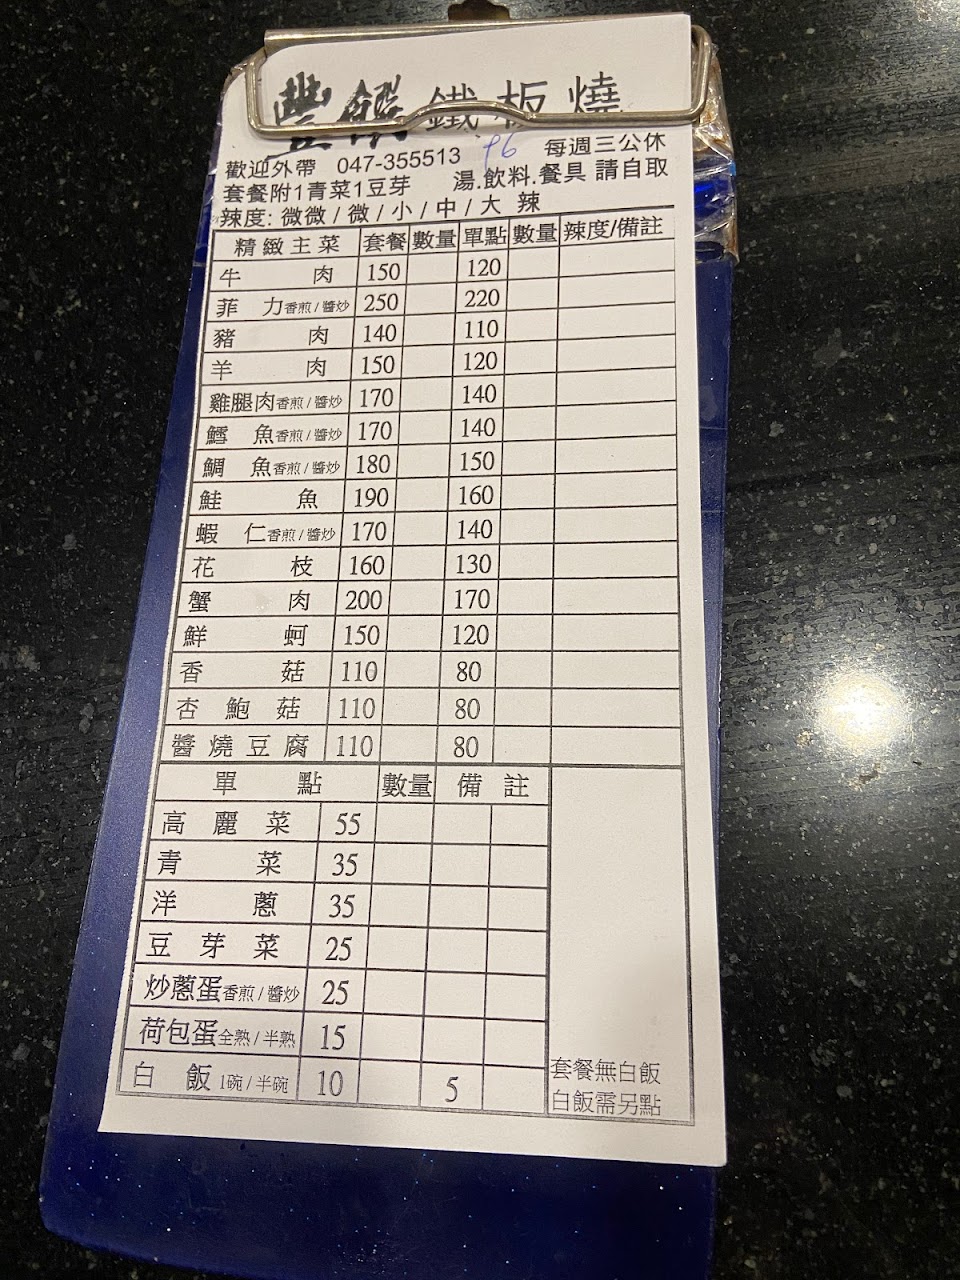 豐饌鐵板燒
歡迎外帶 047-355513 P6 每週三公休
套餐附1青菜1豆芽 湯.飲料.餐具 請自取
辣度: 微微 / 微 / 小 / 中 / 大 辣
精緻主菜 套餐 數量 單點 數量 辣度/備註
牛肉 150 120
菲力香煎/醬炒 250 220
豬肉 140 110
羊肉 150 120
雞腿肉香煎/醬炒 170 140
鱈魚香煎/醬炒 170 140
鯛魚香煎/醬炒 180 150
鮭魚 190 160
蝦仁香煎/醬炒 170 140
花枝 160 130
蟹肉 200 170
鮮蚵 150 120
香菇 110 80
杏鮑菇 110 80
醬燒豆腐 110 80
單點 數量 備註
高麗菜 55
青菜 35
洋蔥 35
豆芽菜 25
炒蔥蛋香煎/醬炒 25
荷包蛋全熟/半熟 15
白飯 1碗/半碗 10 5
套餐無白飯
白飯需另點